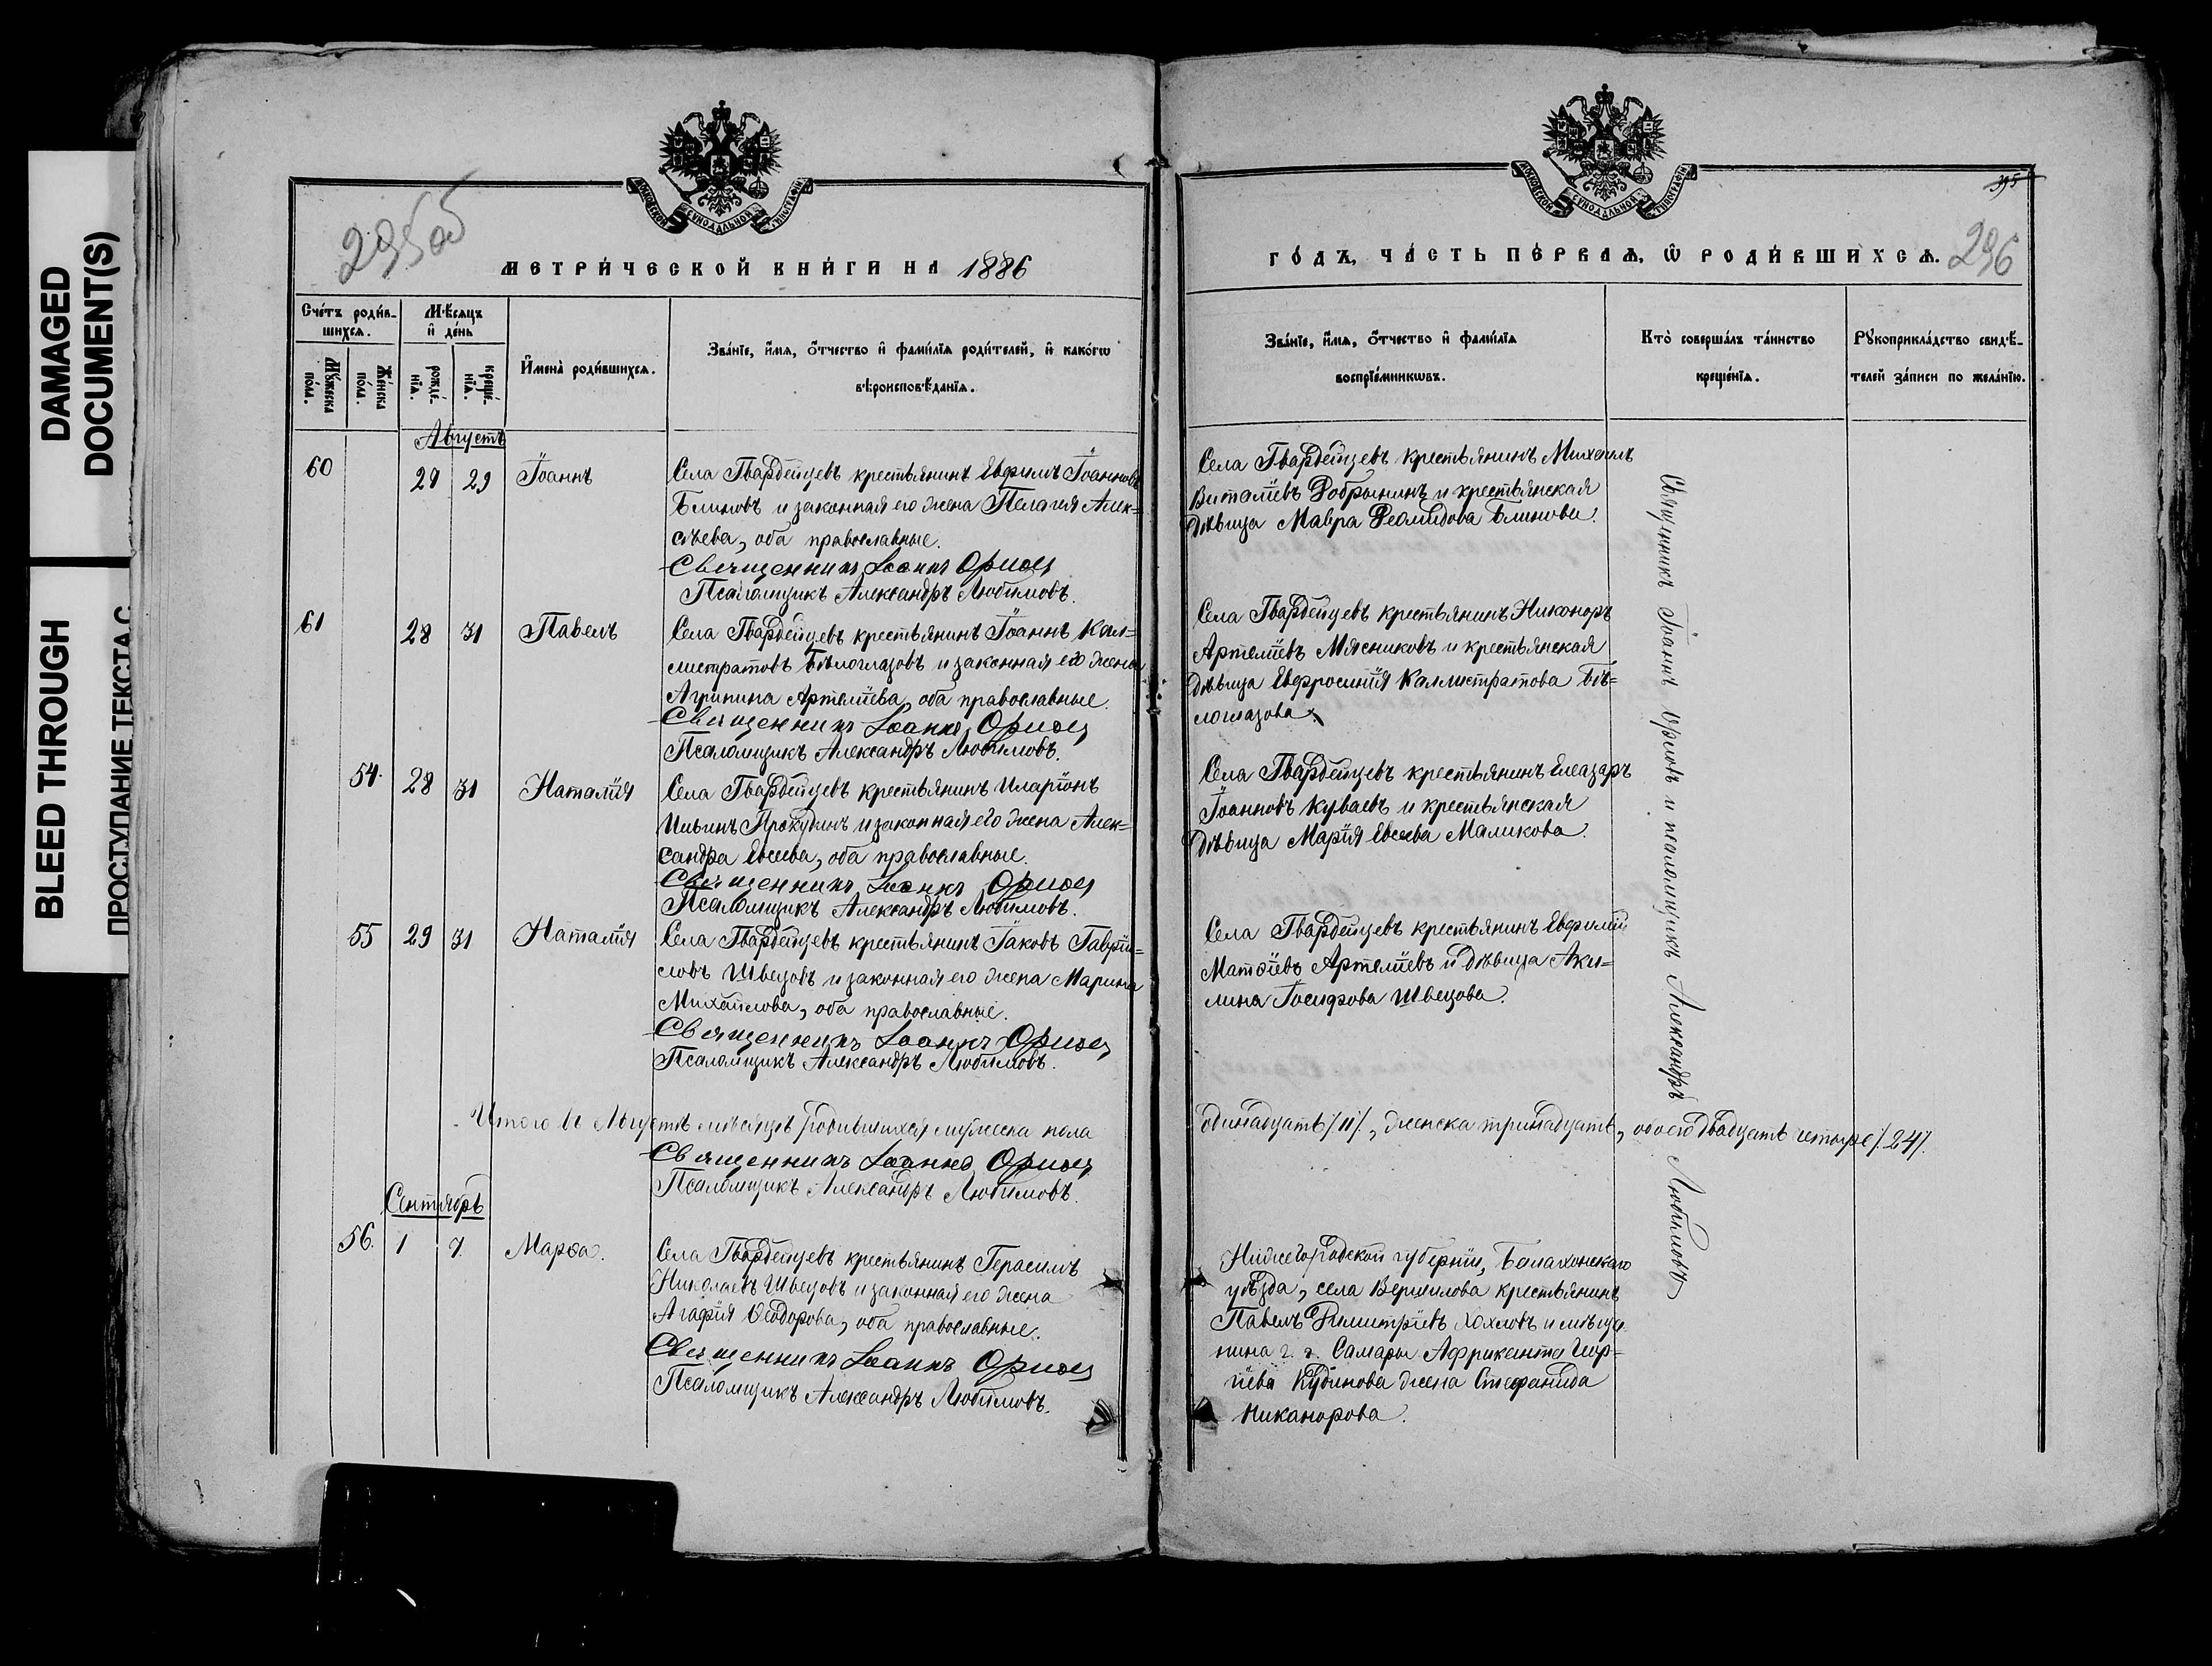 DAMAGED
DOCUMENT(S)
BLEED THROUGH
295об
МЕТРИ́ЧЕСКОЙ КНИ́ГИ НА 1886
Сче́тъ роди́в-
шихся.
Мѣ́сяцъ
и҆ де́нь
Му́жеска
по́ла.
Же́нска
по́ла.
рожде́-
нїя.
креще́-
нїя.
И҆мена̀ роди́вшихся.
Зва́нїе, и҆́мя, ѻ҆́тчество и҆ фами́лїя роди́телей, и҆ какогѡ
вѣроисповѣ́данїя.
Августъ
60 29 29 Іоаннъ
Села Гвардейцевъ крестьянинъ Евфимъ Іоанновъ
Блиновъ и законная его жена Пелагія Алек-
сѣева, оба православные.
Священникъ Іоаннъ Орлов
Псаломщикъ Александръ Любимовъ.
61 28 31 Павелъ
Села Гвардейцевъ крестьянинъ Іоаннъ Кал-
листратовъ Бѣлоглазовъ и законная его жена
Агрипина Артеміева, оба православные.
Священникъ Іоаннъ Орлов
Псаломщикъ Александръ Любимовъ.
54. 28 31 Наталія
Села Гвардейцевъ крестьянинъ Иларіонъ
Ильинъ Прокудинъ и законная его жена Алек-
сандра Евсеева, оба православные.
Священникъ Іоаннъ Орлов
Псаломщикъ Александръ Любимовъ.
55 29 31 Наталія
Села Гвардейцевъ крестьянинъ Іаковъ Гаврїи-
ловъ Швецовъ и законная его жена Марина
Михайлова, оба православные.
Священникъ Іоаннъ Орлов
Псаломщикъ Александръ Любимовъ.
Итого въ Августѣ мѣсяцѣ родившихся мужеска пола
Священникъ Іоаннъ Орлов
Псаломщикъ Александръ Любимовъ.
Сентябрь
56. 1 7. Марѳа.
Села Гвардейцевъ крестьянинъ Герасимъ
Николаевъ Швецовъ и законная его жена
Агафія Ѳеодорова, оба православные.
Священникъ Іоаннъ Орлов
Псаломщикъ Александръ Любимовъ.
296
ГО́ДЪ, ЧА́СТЬ ПЕ́РВАЯ, Ѡ҆ РОДИ́ВШИХСЯ.
Зва́нїе, и҆́мя, ѻ҆́тчество и҆ фами́лїя
воспрїе́мникѡвъ.
Кто̀ соверша́лъ та́инство
креще́нїя.
Рꙋкоприкла́дство свидѣ́-
телей за́писи по жела́нїю.
Села Гвардейцевъ крестьянинъ Михаилъ
Виталіевъ Добрынинъ и крестьянская
дѣвица Мавра Леонидова Блинова.
Села Гвардейцевъ крестьянинъ Никоноръ
Артеміевъ Мясниковъ и крестьянская
дѣвица Евфросинія Каллистратова Бѣ-
логлазова.
Села Гвардейцевъ крестьянинъ Елеазаръ
Іоанновъ Куваевъ и крестьянская
дѣвица Марія Евсеева Маликова.
Села Гвардейцевъ крестьянинъ Евфимій
Матѳіевъ Артеміевъ и дѣвица Аки-
лина Іосифова Швецова.
одинадцать /11/., женска тринадцать, обоего двадцать четыре /.24/.
Нижегородской губерніи, Балахонскаго
уѣзда, села Вершилова крестьянинъ
Павелъ Димитріевъ Хохловъ и мѣща-
нина г. г. Самары Африканта Геор-
гіева Кудинова жена Стефанида
Никанорова.
Священникъ Іоаннъ Орловъ и псаломщикъ Александръ Любимовъ